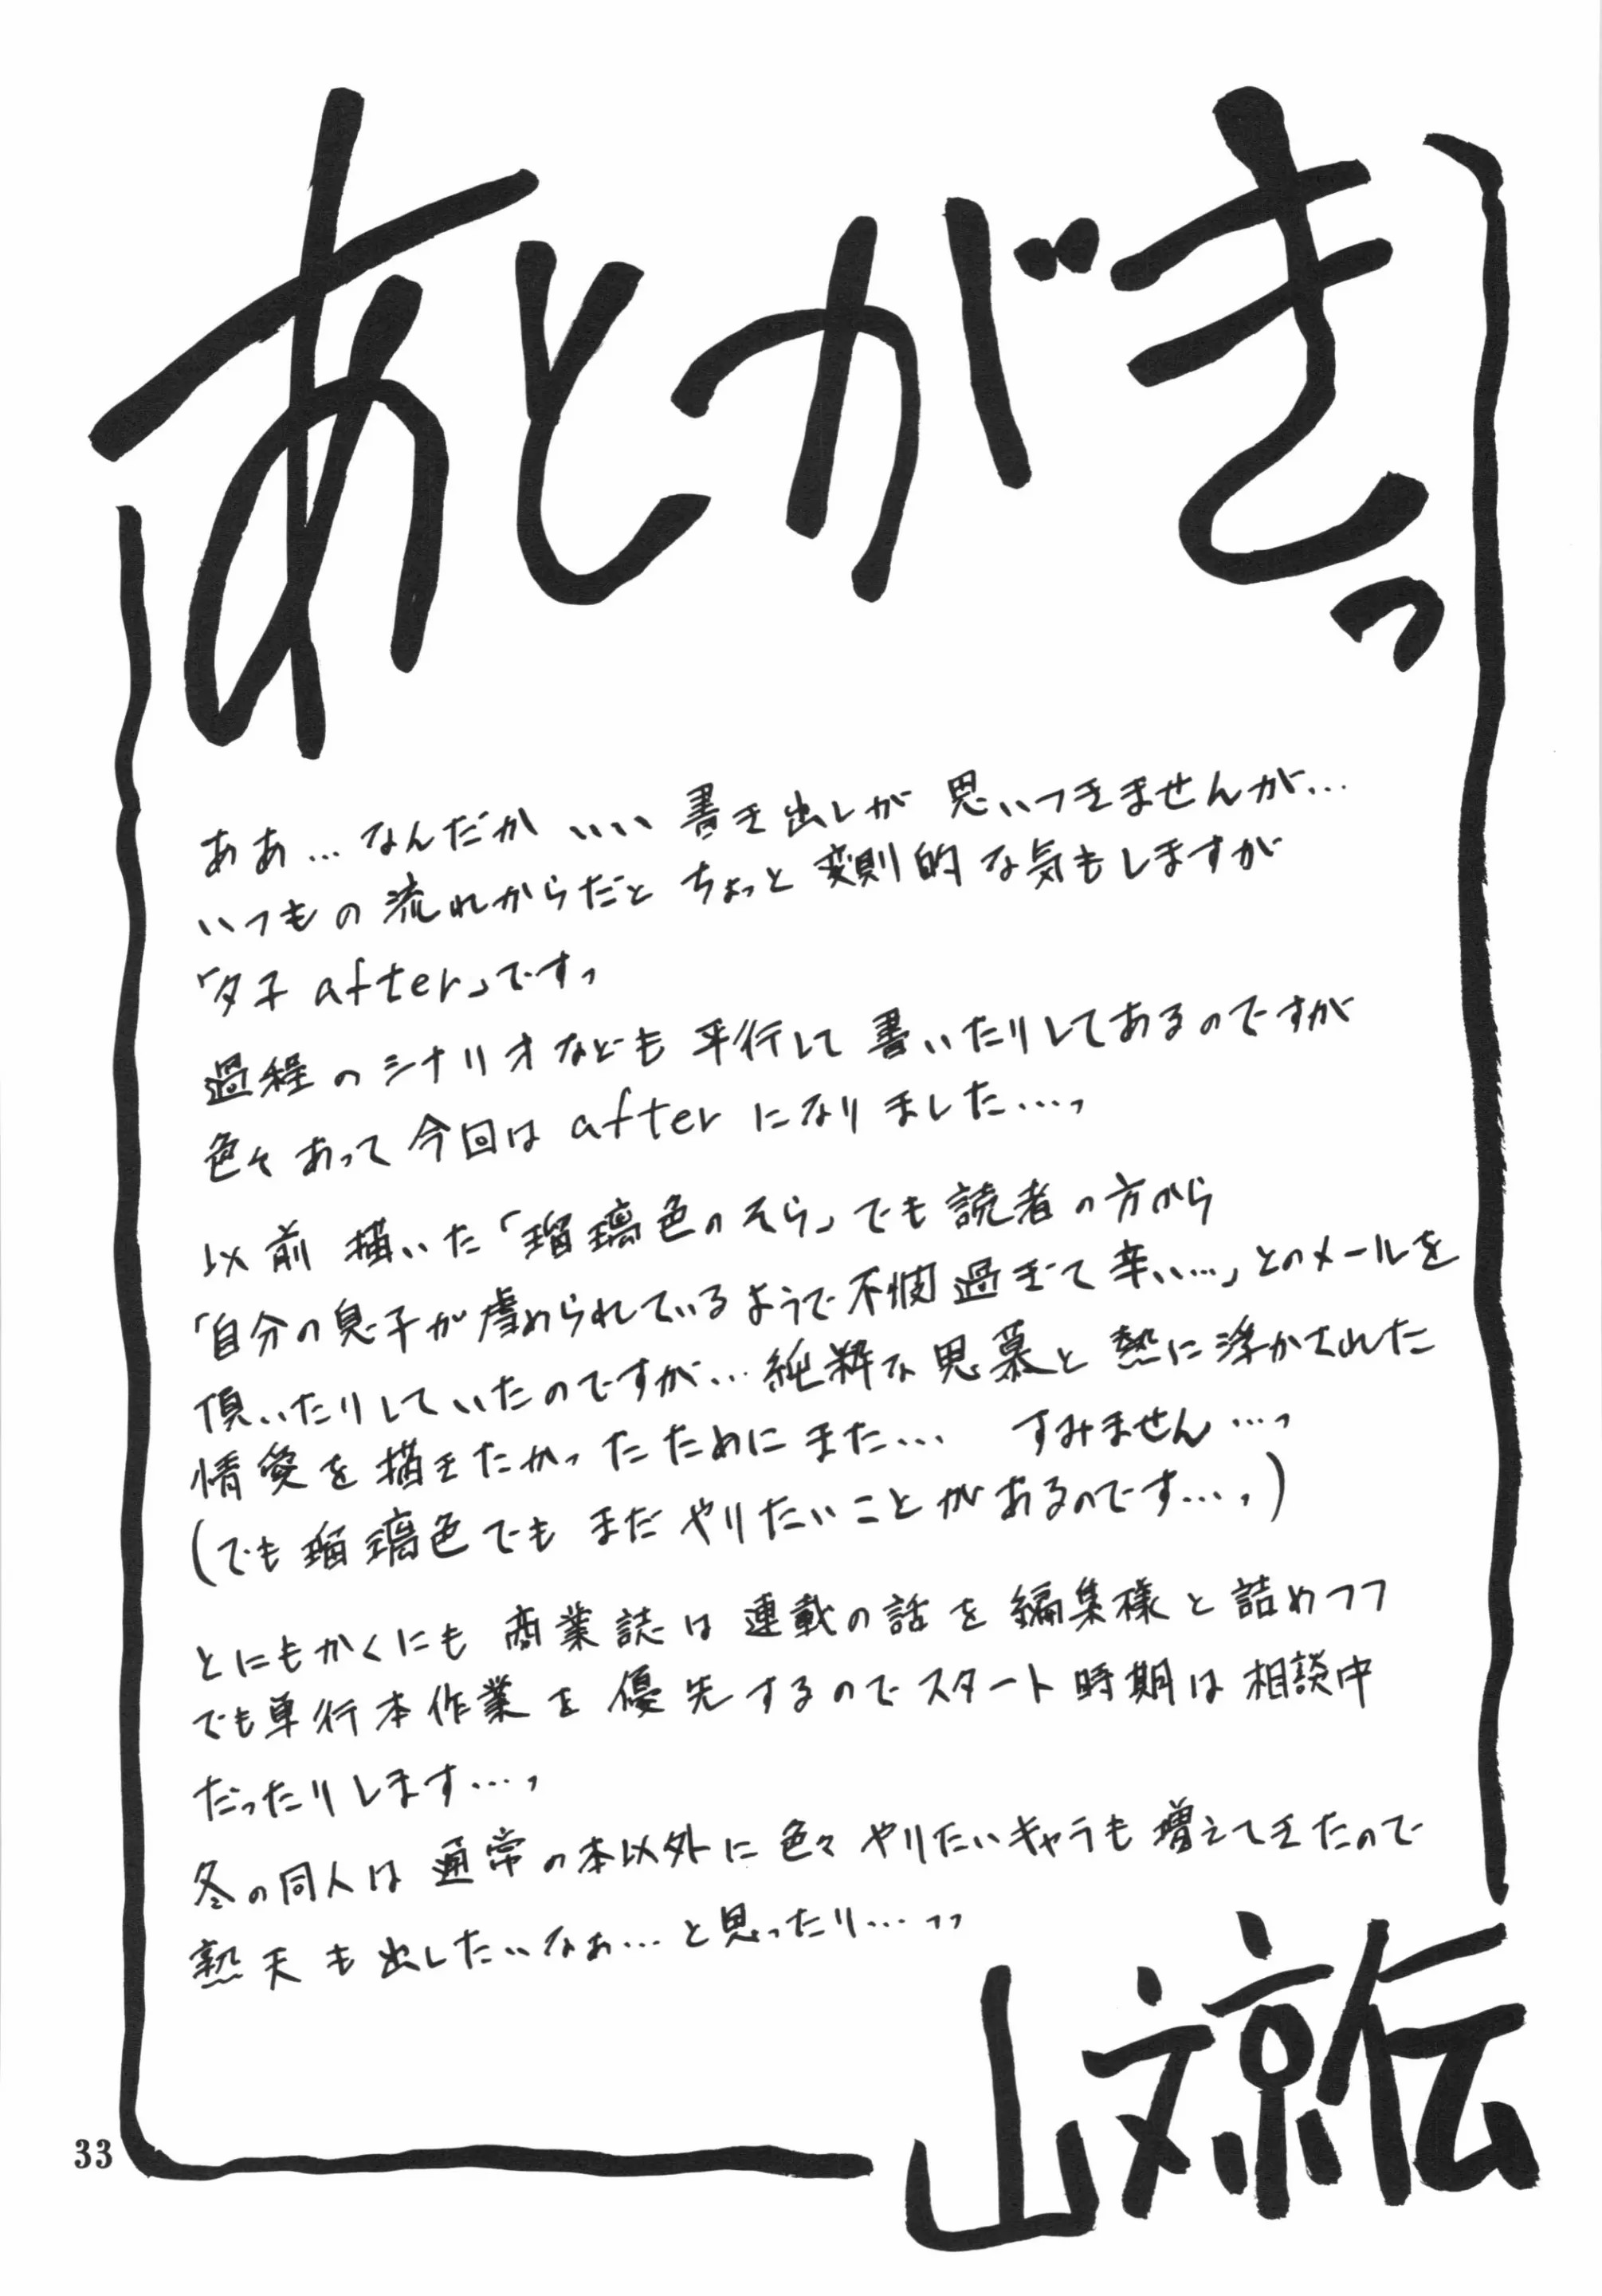 あとがきっ
ああ…なんだか いい 書き出しが 思いつきませんが…
いつもの 流れからだと ちょっと 変則的な気もしますが
「夕子 after」ですっ
過程のシナリオなども 平行して 書いたりしてあるのですが
色々あって 今回は after になりました…っ
以前 描いた「瑠璃色のそら」でも 読者の方から
「自分の息子が虐められているようで不憫過ぎて辛い…」とのメールを
頂いたりしていたのですが…純粋な思慕と 熱に浮かされた
情愛を描きたかったためにまた… すみません…っ
(でも瑠璃色でも まだやりたいことがあるのです…っ)
とにもかくにも 商業誌は 連載の話を 編集様と 詰めつつ
でも単行本作業を 優先するのでスタート時期は 相談中
だったりします…っ
冬の同人は 通常の本以外に 色々やりたいキャラも 増えてきたので
熱天も出したいなぁ…と思ったり…っっ
山文京伝
33